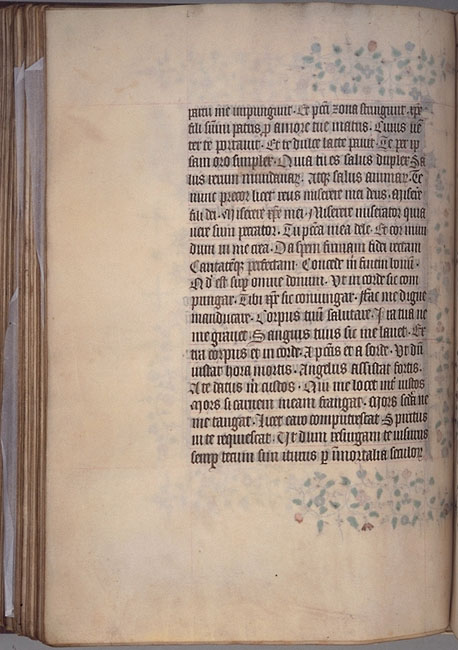 parcu me inpungunt. Et pctī zona stringunt. xp̄e
fili sūmi patris p amore tue matris. Cuius uē
ter te portauit. Et te dulce lacte pauit. Te per ip
sam oro simplex. Quia tu es salus duplex Sa
lus rerum mundanar. Atq salus animar. Te
nunc precor licet reus miserere mei deus. Misere
fili dei. Miserere xp̄e mei. Miserere miserator quia
uere sum peccator. Tu pctā mea dele. Et cor mun
dum in me crea. Da spem firmam fidei rectam
Caritatēq perfectam. Concede in finem bonū.
Qd est sup omne donum. Ut in corde sic com
pungar. Tibi xp̄e sic coniungar. Fac me digne
manducare. Corpus tuū salutare. Ita tua ne
me grauet. Sanguis tuus sic me lauet. Ex
tra corpus et in corde. A pctīs et a sorde. Ut dū
instat hora mortis. Angelus assistat fortis.
A te datus in custos. Qui me locet int iustos
Mors si carnem meam frangat. Mors scdā ne
me tangat. Licet caro computrescat Spiritus
in te requiescat. Ut dum resurgam te uisurus
semp tecum sim iturus p inmortalia seculor